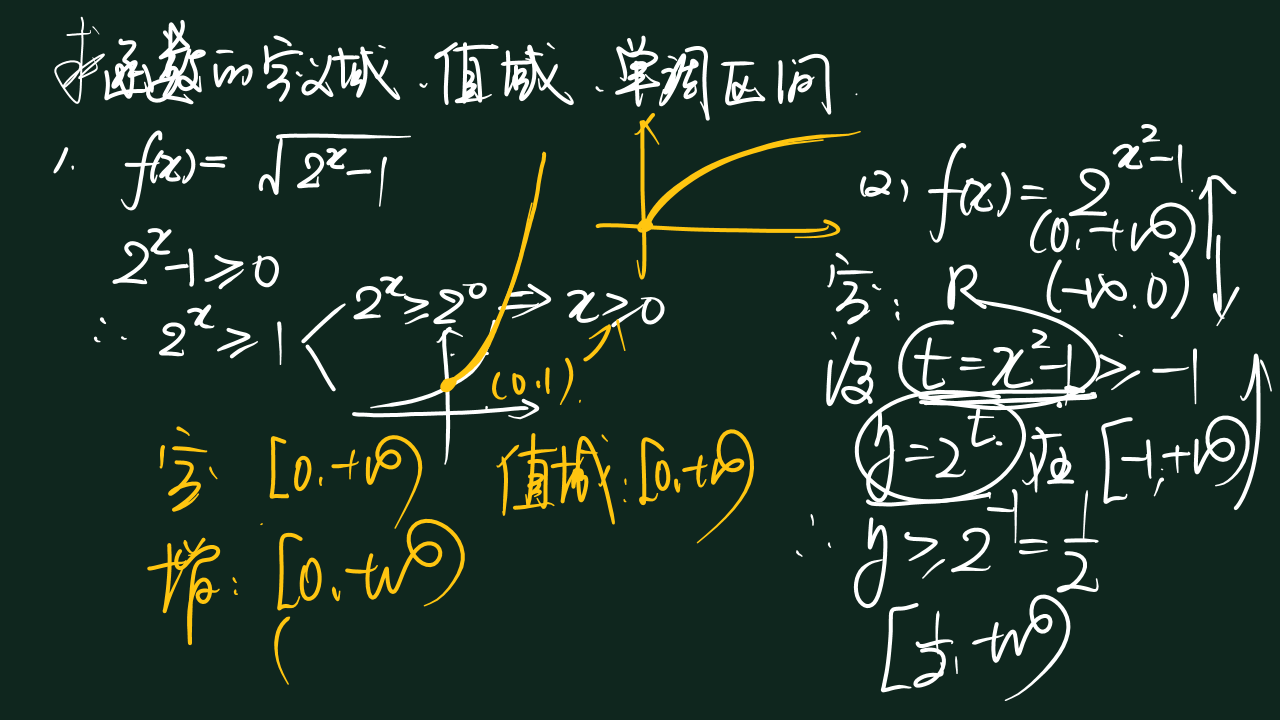 求函数的定义域、值域、单调区间.
1. f(x)=√(2^x-1)
2^x-1≥0
∴ 2^x≥1
2^x≥2^0 ⇒ x≥0
(0,1)
定 [0,+∞)
值域:[0,+∞)
增:[0,+∞)
(
(2) f(x)=2^(x²-1)
(0,+∞)↑
定: R (-∞,0)↓
设 t=x²-1≥-1
y=2^t 在 [-1,+∞)↑
∴ y≥2^-1=1/2
[1/2,+∞)